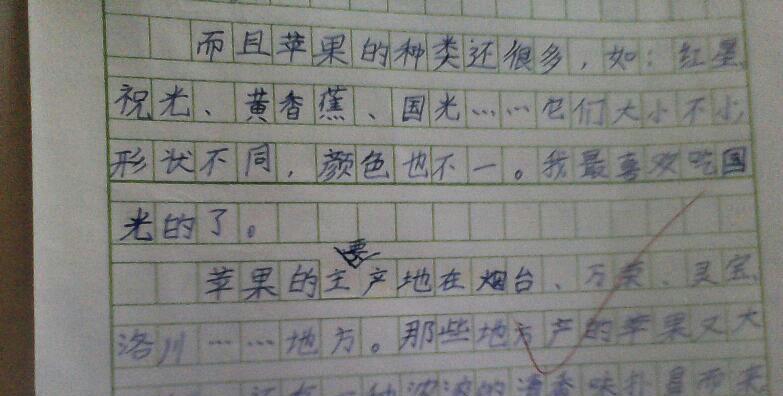 而且苹果的种类还很多，如：红星、
祝光、黄香蕉、国光……它们大小不小，
形状不同，颜色也不一。我最喜欢吃国
光的了。
苹果的主要产地在烟台、万荣、灵宝、
洛川……地方。那些地方产的苹果又大
还有一种浓浓的清香味扑鼻而来